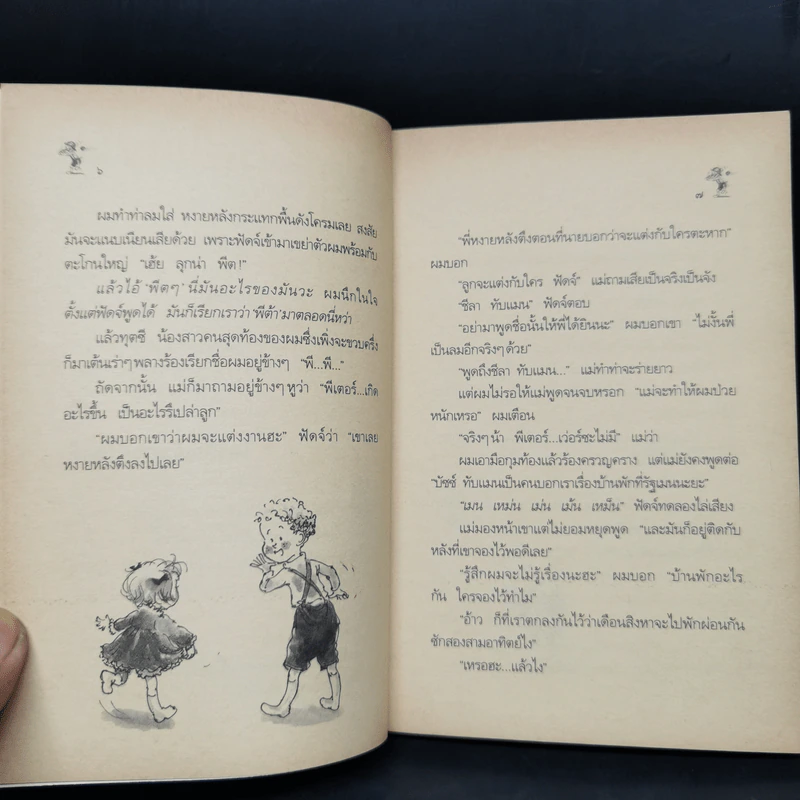 ๖
ผมทำท่าลมใส่ หงายหลังกระแทกพื้นดังโครมเลย สงสัย
มันจะแนบเนียนเสียด้วย เพราะฟัดจ์เข้ามาเขย่าตัวผมพร้อมกับ
ตะโกนใหญ่ "เฮ้ย ลุกน่า พีต!"
แล้วไอ้ 'พีตๆ' นี่มันอะไรของมันวะ ผมนึกในใจ
ตั้งแต่ฟัดจ์พูดได้ มันก็เรียกเราว่า 'พีต้า' มาตลอดนี่หว่า
แล้วทุตซี น้องสาวคนสุดท้องของผมซึ่งเพิ่งจะขวบครึ่ง
ก็มาเต้นเร่าๆ พลางร้องเรียกชื่อผมอยู่ข้างๆ "พี...พี..."
ถัดจากนั้น แม่ก็มาถามอยู่ข้างๆ หูว่า "พีเตอร์...เกิด
อะไรขึ้น เป็นอะไรรึเปล่าลูก"
"ผมบอกเขาว่าผมจะแต่งงานฮะ" ฟัดจ์ว่า "เขาเลย
หงายหลังตึงลงไปเลย"
๗
"พี่หงายหลังตึงตอนที่นายบอกว่าจะแต่งกับใครตะหาก"
ผมบอก
"ลูกจะแต่งกับใคร ฟัดจ์" แม่ถามเสียเป็นจริงเป็นจัง
"ชีลา ทับแมน" ฟัดจ์ตอบ
"อย่ามาพูดชื่อนั้นให้พี่ได้ยินนะ" ผมบอกเขา "ไม่งั้นพี่
เป็นลมอีกจริงๆ ด้วย"
"พูดถึงชีลา ทับแมน..." แม่ทำท่าจะร่ายยาว
แต่ผมไม่รอให้แม่พูดจนจบหรอก "แม่จะทำให้ผมป่วย
หนักเหรอ" ผมเตือน
"จริงๆ น้า พีเตอร์...เว่อร์ซะไม่มี" แม่ว่า
ผมเอามือกุมท้องแล้วร้องครวญคราง แต่แม่ยังคงพูดต่อ
"บัซซ์ ทับแมนเป็นคนบอกเราเรื่องบ้านพักที่รัฐเมนนะยะ"
"เมน เหม่น เม่น เม้น เหม็น" ฟัดจ์ทดลองไล่เสียง
แม่มองหน้าเขาแต่ไม่ยอมหยุดพูด "และมันก็อยู่ติดกับ
หลังที่เขาจองไว้พอดีเลย"
"รู้สึกผมจะไม่รู้เรื่องนะฮะ" ผมบอก "บ้านพักอะไร
กัน ใครจองไว้ทำไม"
"อ้าว ก็ที่เราตกลงกันไว้ว่าเดือนสิงหาจะไปพักผ่อนกัน
ซักสองสามอาทิตย์ไง"
"เหรอฮะ...แล้วไง"